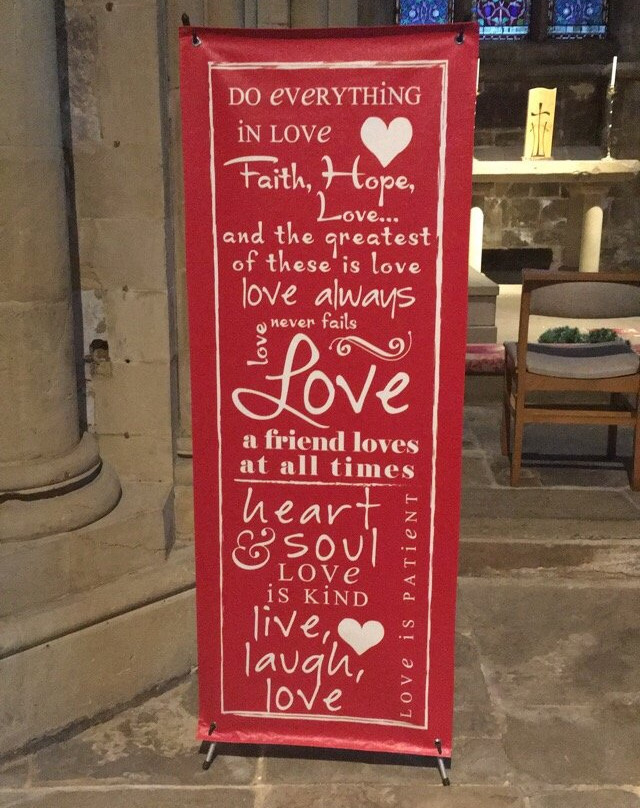 DO eVERYTHiNG
iN LOVe
Faith, Hope,
Love...
and the greatest
of these is love
love always
love
never fails
Love
a friend loves
at all times
heart
& soul
LOVe
iS KiND
live,
laugh,
love
LOVe iS PATieNT